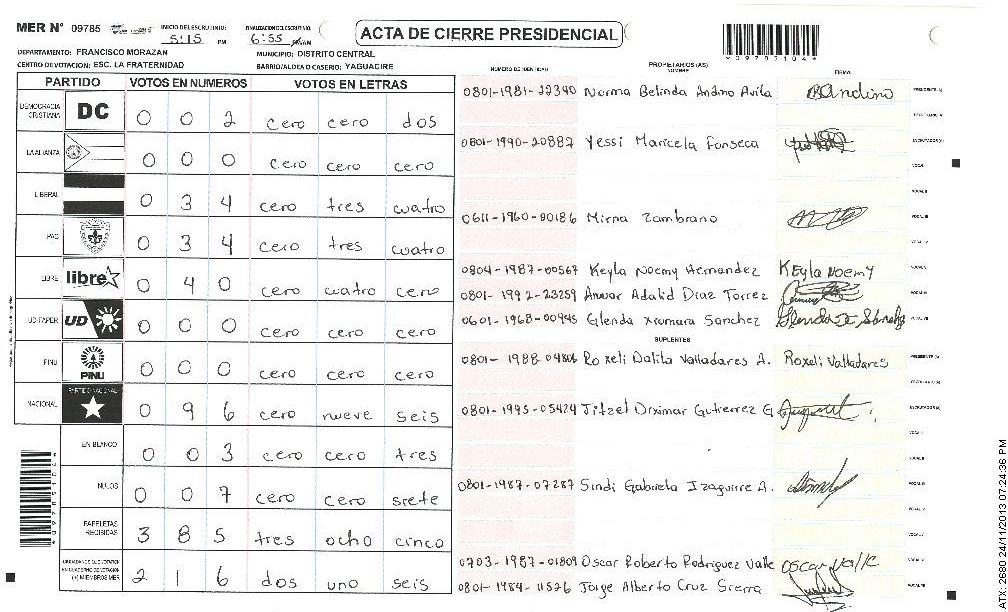 MER N° 09785
INICIO DEL ESCRUTINIO: 5:15 PM
FINALIZACION DEL ESCRUTINIO: 6:55
ACTA DE CIERRE PRESIDENCIAL
DEPARTAMENTO: FRANCISCO MORAZAN
MUNICIPIO: DISTRITO CENTRAL
CENTRO DE VOTACION: ESC. LA FRATERNIDAD
BARRIO/ALDEA O CASERIO: YAGUACIRE
*09785104*
PARTIDO VOTOS EN NUMEROS VOTOS EN LETRAS
DEMOCRACIA CRISTIANA DC 0 0 2 cero cero dos
LA ALIANZA 0 0 0 cero cero cero
LIBERAL 0 3 4 cero tres cuatro
PAC 0 3 4 cero tres cuatro
LIBRE libre 0 4 0 cero cuatro cero
UD-FAPER UD 0 0 0 cero cero cero
PINU PINU 0 0 0 cero cero cero
NACIONAL PARTIDO NACIONAL 0 9 6 cero nueve seis
EN BLANCO 0 0 3 cero cero tres
NULOS 0 0 7 cero cero siete
PAPELETAS RECIBIDAS 3 8 5 tres ocho cinco
CIUDADANOS QUE VOTARON EN CUADERNO DE VOTACION (+) MIEMBROS MER 2 1 6 dos uno seis
NUMERO DE IDENTIDAD PROPIETARIOS (AS) NOMBRE FIRMA
0801-1981-22340 Norma Belinda Andino Avila BAndino PRESIDENTE (A)
SECRETARIO (A)
0801-1990-20887 Yessi Maricela Fonseca ESCRUTADOR (A)
VOCAL I
VOCAL II
0611-1960-00186 Mirna Zambrano VOCAL III
VOCAL IV
0804-1987-00567 Keyla Noemy Hernandez Keyla Noemy VOCAL V
0801-1992-23259 Anwar Adalid Diaz Torrez VOCAL VI
0601-1968-00945 Glenda Xiomara Sanchez VOCAL VII
SUPLENTES
0801-1988-04806 Roxeli Dalila Valladares A. Roxeli Valladares PRESIDENTE (A)
SECRETARIO (A)
0801-1995-05424 Jitzel Diximar Gutierrez G ESCRUTADOR (A)
VOCAL I
VOCAL II
0801-1987-07287 Sindi Gabriela Izaguirre A. VOCAL III
VOCAL IV
VOCAL V
0703-1987-01809 Oscar Roberto Rodriguez Valle oscar valle VOCAL VI
0801-1984-11526 Jorge Alberto Cruz Sierra VOCAL VII
*09785104*
ATX-2580 24/11/2013 07:24:36 PM